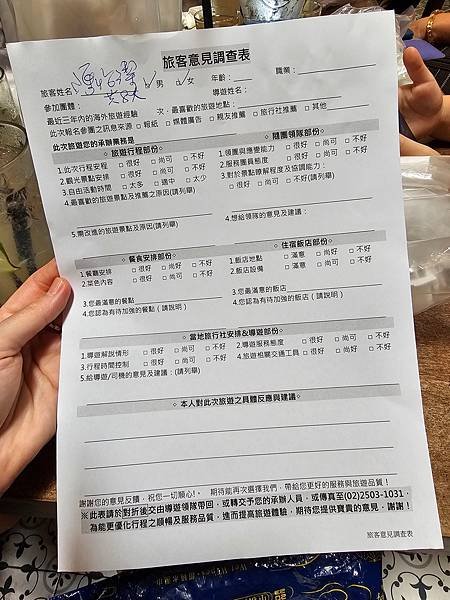 旅客意見調查表
旅客姓名： □男 □女 年齡：___ 職業：
參加團體： 導遊姓名：
最近三年內的海外旅遊經驗 次，最喜歡的旅遊地點：
此次報名參團之訊息來源 □報紙 □媒體廣告 □親友推薦 □旅行社推薦 □其他
此次旅遊您的承辦業務是
◇ 旅遊行程部份◇ ◇ 隨團領隊部份◇
1.此次行程安排 □很好 □尚可 □不好 1.領團與應變能力 □很好 □尚可 □不好
2.觀光景點安排 □很好 □尚可 □不好 2.服務團員態度 □很好 □尚可 □不好
3.自由活動時間 □太多 □適中 □太少 3.對於景點瞭解程度及協調能力：
4.最喜歡的旅遊景點及推薦之原因(請列舉) □很好 □尚可 □不好(請列舉)
4.想給領隊的意見及建議：
5.需改進的旅遊景點及原因(請列舉)
◇ 餐食安排部份◇ ◇ 住宿飯店部份◇
1.餐廳安排 □很好 □尚好 □不好 1.飯店地點 □滿意 □尚好 □不好
2.菜色內容 □很好 □尚可 □不好 2.飯店設備 □滿意 □尚可 □不好
3.您最滿意的餐點 3.您最滿意的飯店
4.您認為有待加強的餐點（請說明） 4.您認為有待加強的飯店（請說明）
◇ 當地旅行社安排&導遊部份◇
1.導遊解說情形 □很好 □尚可 □不好 2.導遊服務態度 □很好 □尚可 □不好
3.行程時間控制 □很好 □尚可 □不好 4.旅遊相關交通工具 □很好 □尚可 □不好
5.給導遊/司機的意見及建議：(請列舉)
◇ 本人對此次旅遊之具體反應與建議◇
謝謝您的意見反饋，祝您一切順心!。 期待能再次選擇我們，帶給您更好的服務與旅遊品質！
※此表請於對折後交由導遊領隊帶回，或轉交予您的承辦人員，或傳真至(02)2503-1031，
為能更優化行程之順暢及服務品質，進而提高旅遊體驗，期待您提供寶貴的意見，謝謝！
旅客意見調查表